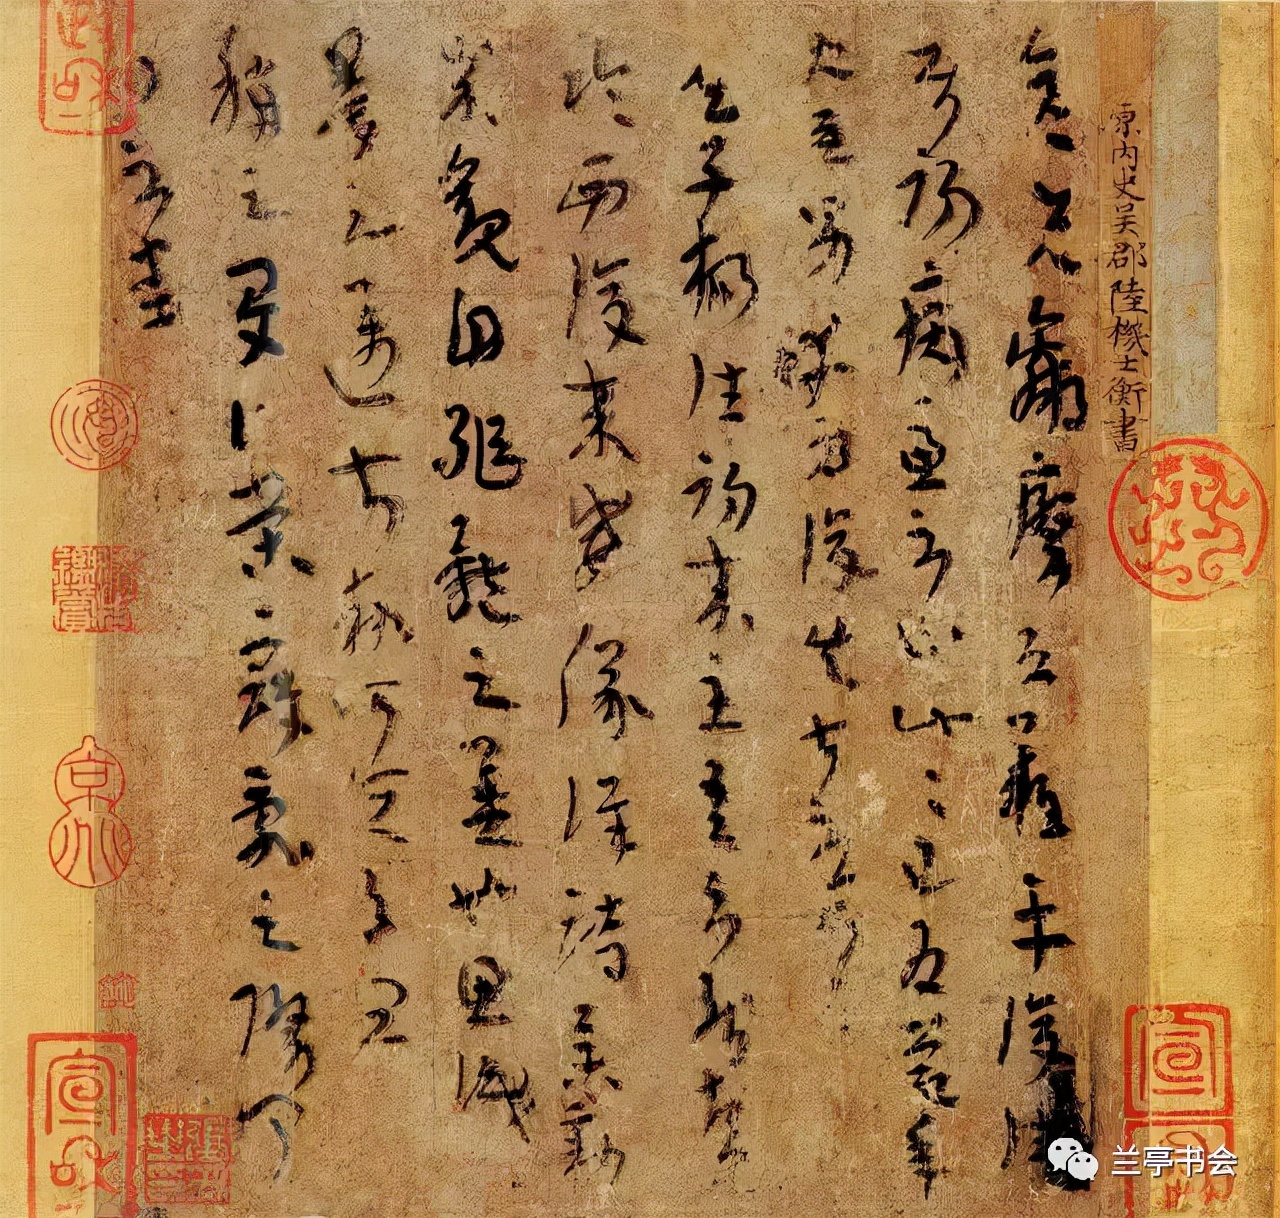 内史吳郡陸機士衡書
彦先羸瘵恐難平復往
屬初病慮不止此此已為慶承
使唯男幸為復失前憂耳
吳子楊往初來主吾不能盡
臨西復來威儀詳跱舉動
成觀自軀體之美也思識
量之邁前執所恒有宜
稱之夏伯榮寇亂之際聞
問不悉
宣和
兰亭书会